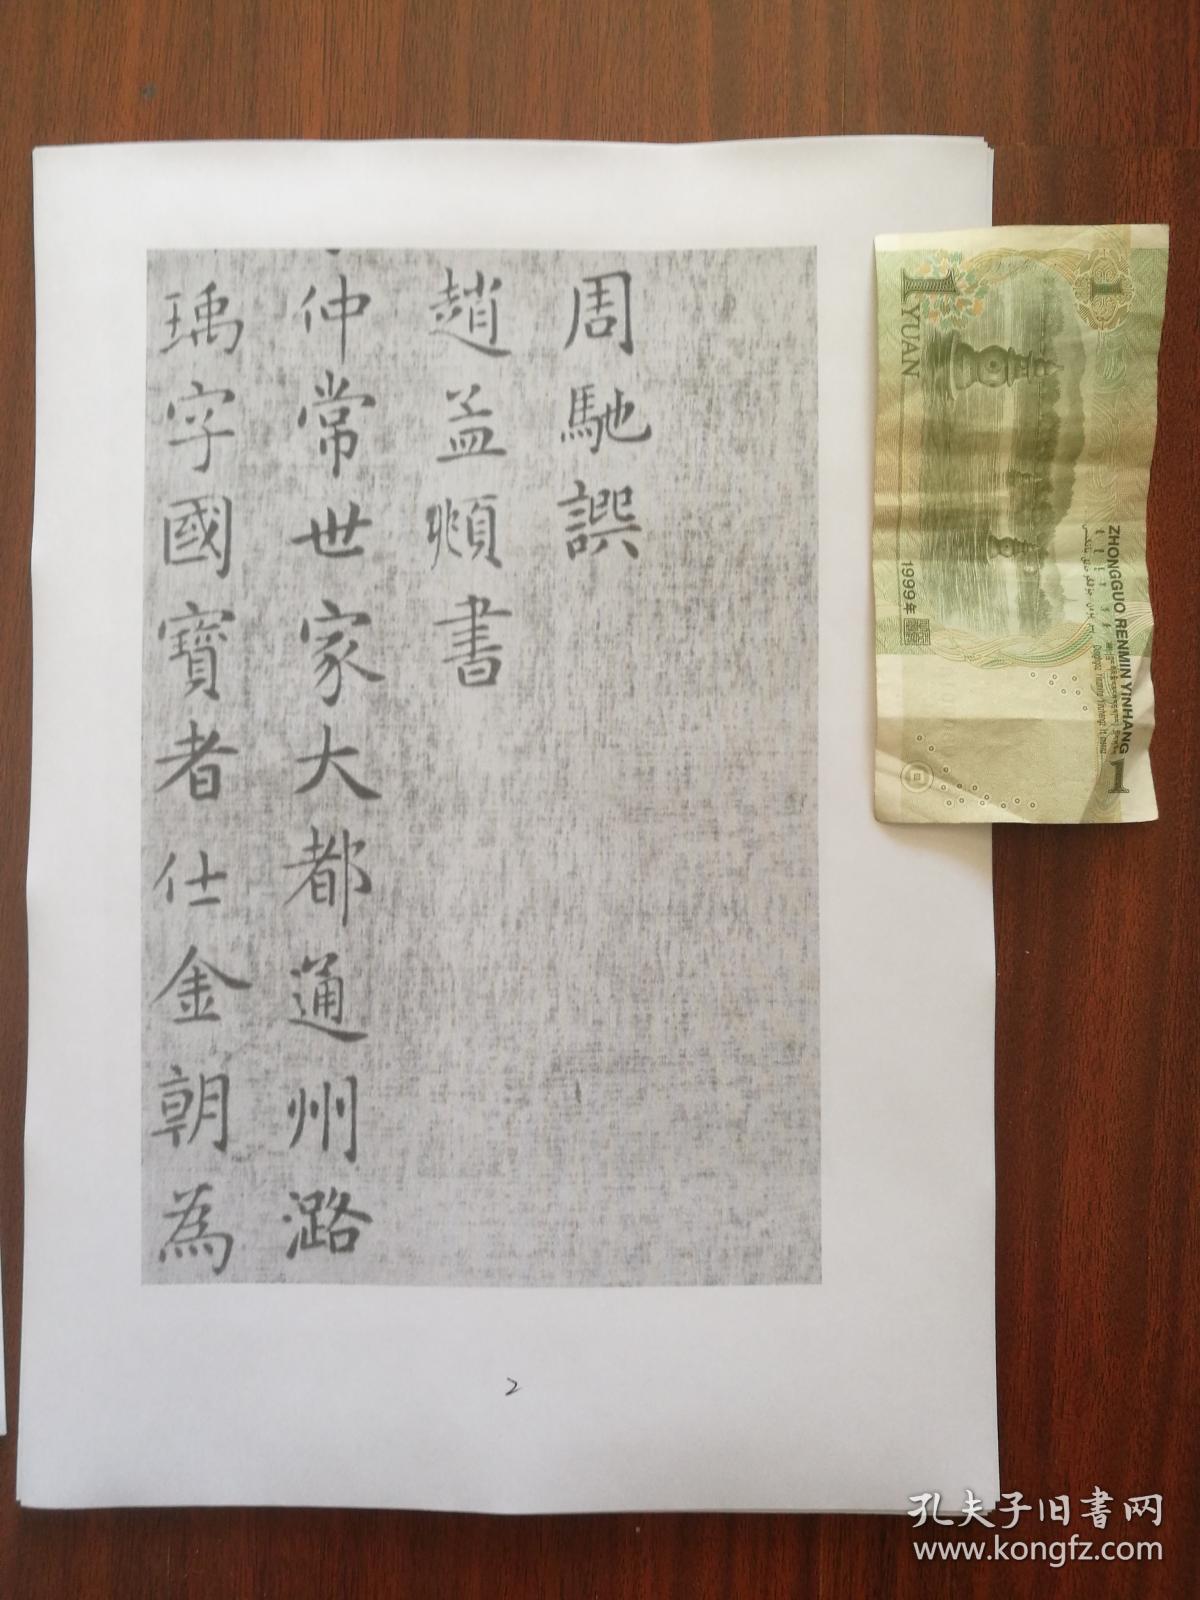 周馳譔
趙孟頫書
仲常世家大都通州潞
瑀字國寶者仕金朝為
2
1
1 YUAN
1999年
ZHONGGUO RENMIN YINHANG
1
孔夫子旧书网
www.kongfz.com